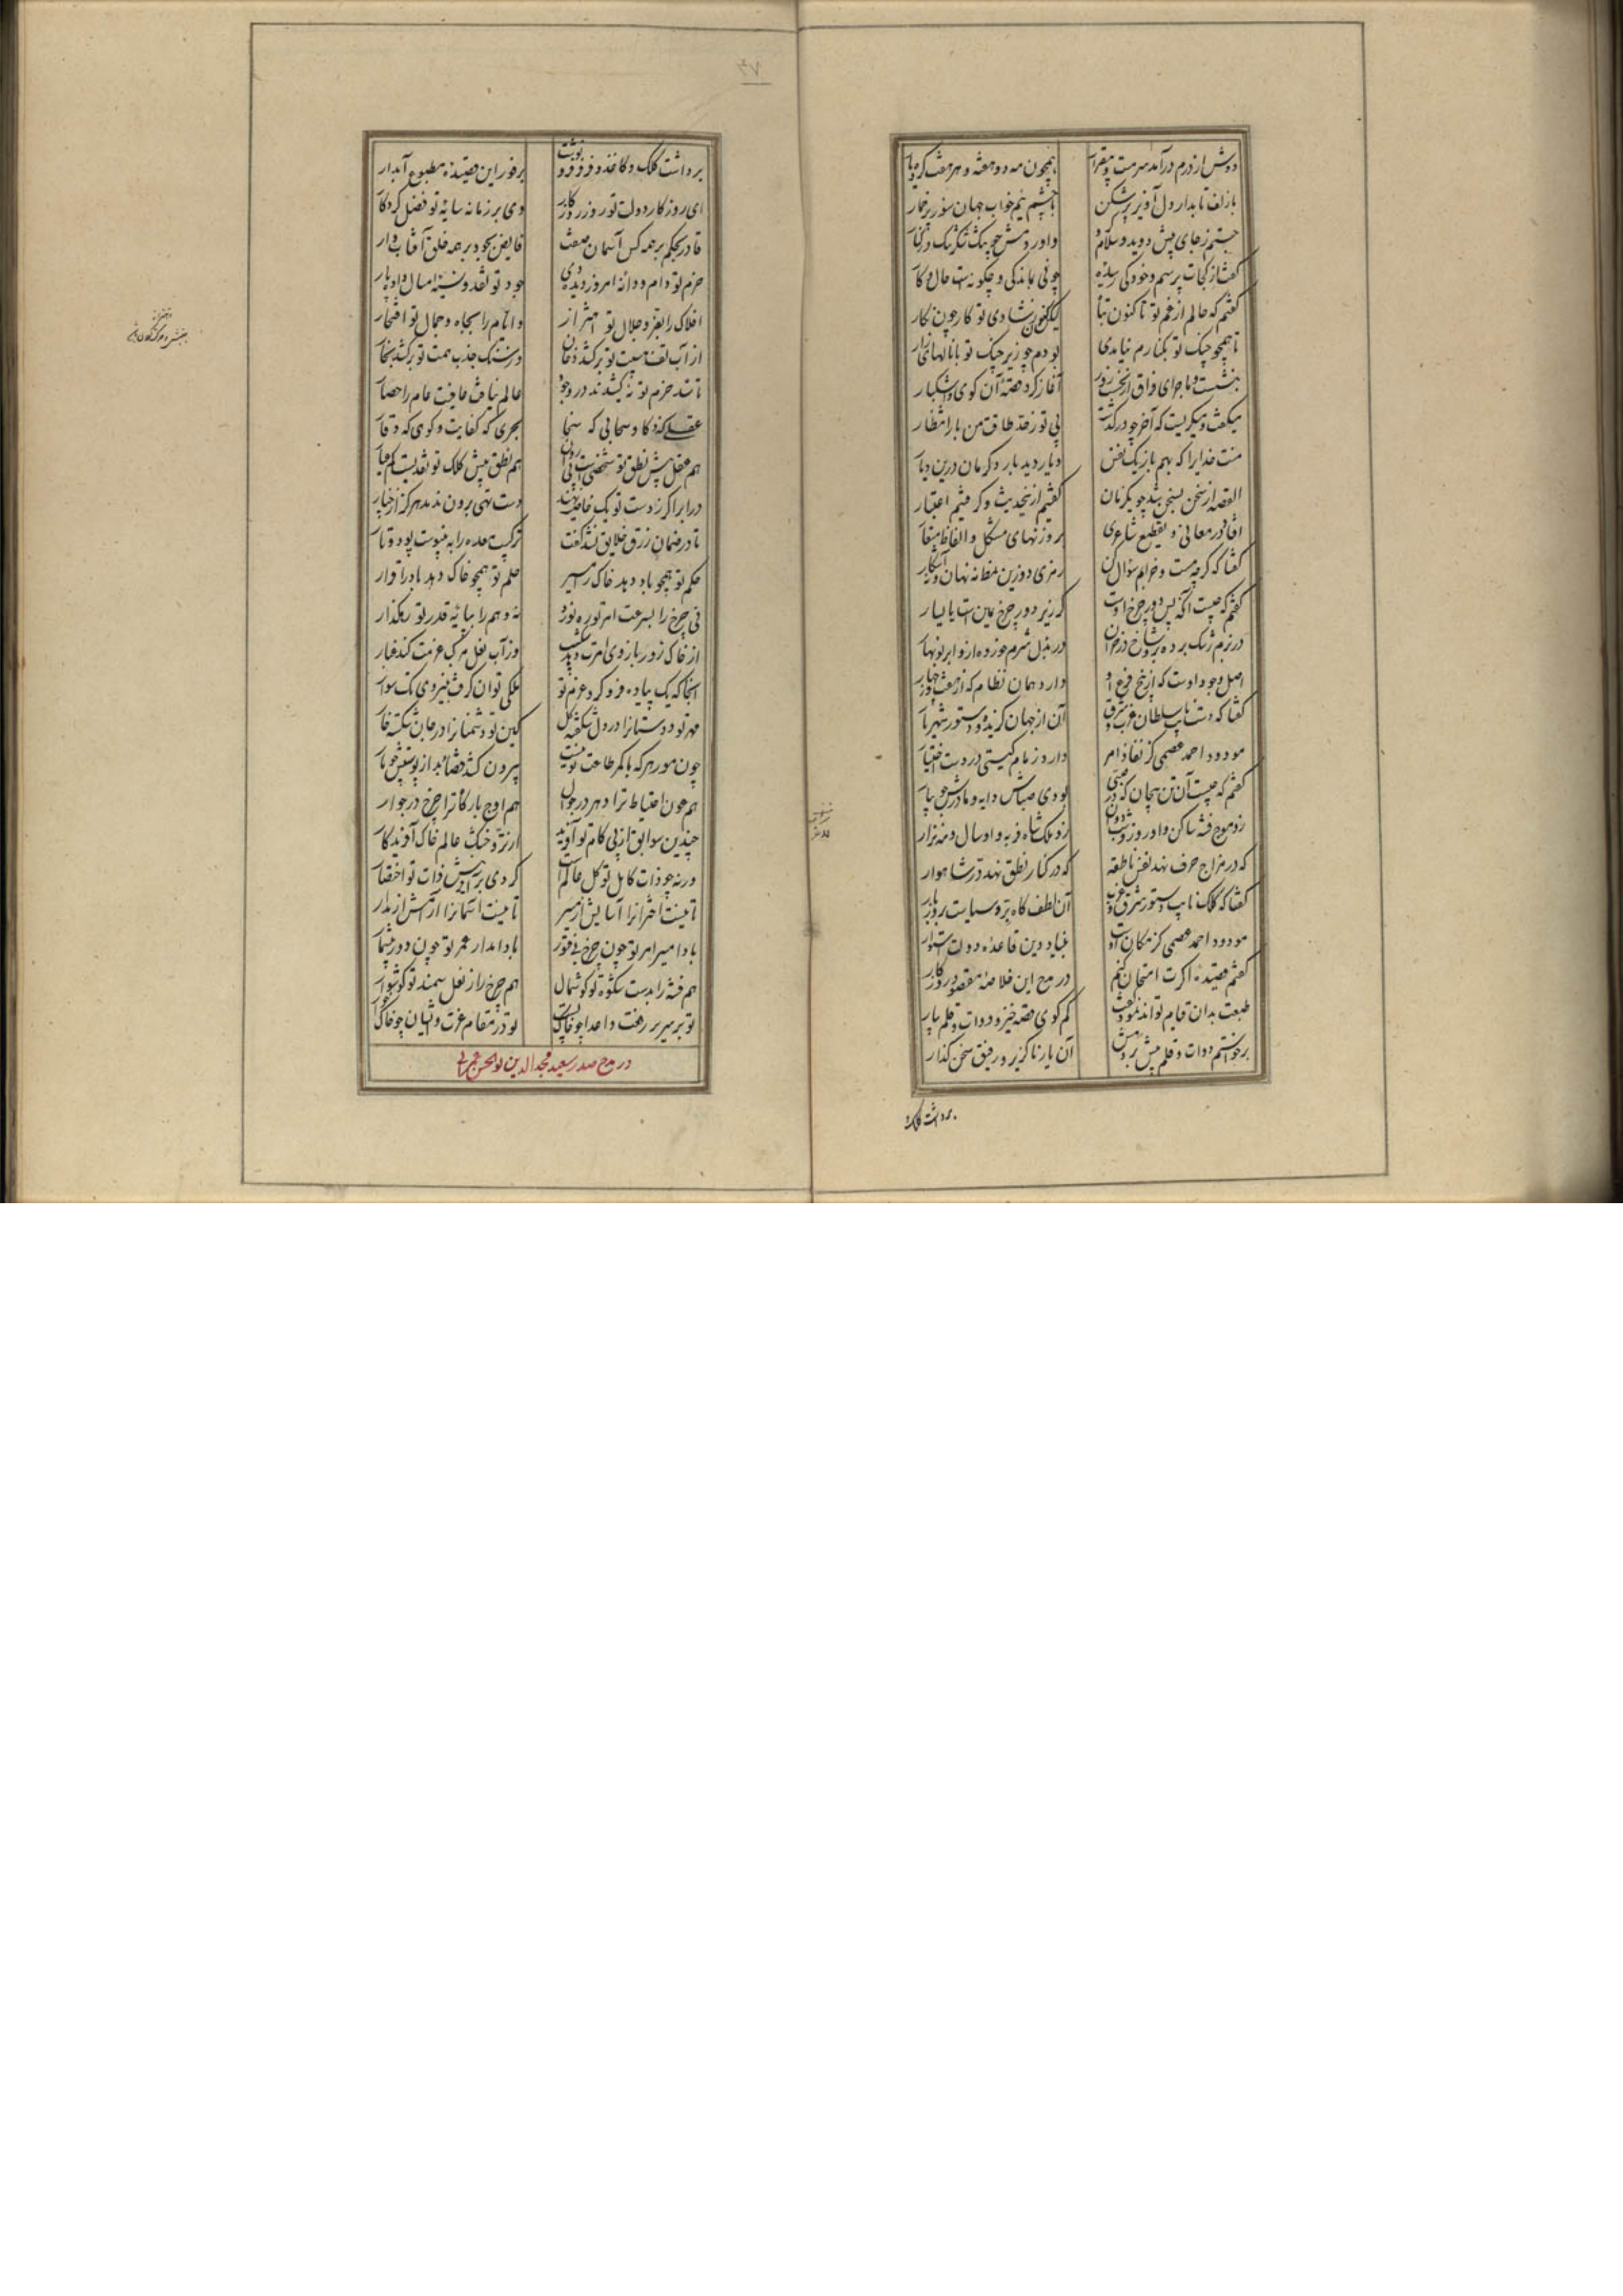 دوش از درم درآمد سرمست و بیقرار همچون مه دو هفته و هر هفت کرده یار
با زلف تابدار دل آویز پر شکن با چشم نیم خواب جهان سوز پر خمار
جستم ز جای پیش دویدم سلام و
گفتا ز کجات پرسم و خود کی رسیده چونی بماندگی و چگونه است حال و کار
گفتم که حالم از غم تو تا کنون تباه لیکن کنون ز شادی تو کار چون نگار
تا همچو چنگ تو بکنارم نیامدی بودم چو زیر چنگ تو با نالهای زار
بنشست و ماجرای فراق از نخست روز آغاز کرد قصهٔ آن گوی و اشکبار
میگفت و میگریست که آخر چو درگذشت بی تو ز حد طاقت من بار انتظار
منت خدایرا که بهم باز یک نفس دیدار دید بار دگرمان درین دیار
القصه از سخن بسخن شد چو یکزمان گفتیم ازین حدیث و گرفتیم اعتبار
افتاد در معانی و تقطیع شاعری بر وزنهای مشکل و الفاظ مستعار
گفتا که گرچه مست و خرابم سؤال کن رمزی دو زین نمط نه نهان و نه آشکار
گفتم که چیست آنکه پس دور چرخ اوست گر زیر دور چرخ یمین است یا یسار
در بزم رشک برده برو شاخ در خزان در بذل شرم خورده ازو ابر نوبهار
اصل وجود اوست که از بیخ فرع او دارد همان نظام که از هفت و از چهار
گفتا که دست نایب سلطان شرق و غرب آن از جهان گزیده و دستور شهریار
مودود احمد عصمی کز نفاذ امر دارد زمام گیتی در دست اختیار
گفتم که چیست آن تن بیجان که در صبی بودی صباش دایه و مادرش جویبار
زرد و ملک شاه فربه و او سال و مه نزار
که در مزاج حرف نهد نفس ناطقه که در کنار نطق نهد در شاهوار
گفتا که کلک نایب دستور شرق و غرب آن لطف گاه بر و سیاست بروز بار
مودود احمد عصمی کز مکان اوست بنیاد دین و قاعدهٔ دولت استوار
گفتم قصیدهٔ اگرت امتحان کنم در مدح این خلاصهٔ مقصود روزگار
طبعت بدان قیام تواند نمود گفت کم گوی قصه خیز و دوات و قلم بیار
برخواستم دوات و قلم پیش بردمش آن یار ناگزیر و رفیق سخن گذار
برداشت کلک
برداشت کلک و کاغذ و فرفر فرو نوشت بر فور این قصیدهٔ مطبوع آبدار
ای روزگار دولت تو روز روزگار وی بر زمانه سایهٔ تو فضل کردگار
قادر بحکم بر همه کس آسمان صفت فایض بجود بر همه خلق آفتاب وار
حزم تو دام و دانهٔ امروز دیده دی جود تو نقد و نسیهٔ امسال داده پار
افلاک را بعز و جلال تو اهتزاز و ایام را بجاه و جمال تو افتخار
از آب لطف هیبت تو برکشد دخان وز سنگ جذب همت تو برکشد بخار
تا سد حزم تو نکشیدند در وجود عالم نیافت عافیت عام را حصار
عقلی که ذکا و سحابی که سخا بحری که کفایت و کوهی که وقار
هم عقل پیش نطق تو شخصیست بی زبان هم نطق پیش کلک تو نقدیست کم عیار
در ابر اگر ز دست تو یک خاصیت نهند دست تهی برون ندمد هرگز از چنار
تا در ضمان رزق خلایق نشد کفت ترکیب معده را نه بپیوست پود و تار
حکم تو همچو باد دهد خاک را مسیر حلم تو همچو خاک دهد باد را قرار
نی چرخ را بسرعت امر تو ره نورد نه وهم را بپایهٔ قدر تو رهگذار
از خاک زور بازوی امرت وز آب نعل مرکب عزمت کند غبار
آنجا که یک پیاده فرو کرد عزم تو ملکی توان گرفت بنیروی یک سوار
مهر تو دوستانرا در دل شکفته گل کین تو دشمنانرا در جان شکسته خار
چون مور هر که با کمر طاعت تو نیست بیرون کشد قضاش ز پوستش چو مار
هم عون احتیاط ترا دهر در جوال هم اوج بارگاه ترا چرخ در جوار
چندین سوابق از پی کام تو آفرید ارزتر و خشک عالم خاک آفریدگار
ورنه چو ذات کامل تو کل عالم است کردی بر آفرینش ذات تو اختصار
تا نیست اخترانرا آسایش از مسیر تا نیست آسمانرا آرامش از مدار
بادا مسیر امر تو چون چرخ بی فتور بادا مدار عمر تو چون دور بی شمار
هم فتنه را بدست شکوه تو گوشمال هم چرخ را ز نعل سمند تو گوشوار
تو بر سریر رفعت و اعدا چو خاک پست تو در مقام عزت و ایشان چو خاک خوار
در مدح صدر سعید مجدالدین ابوالحسن عمرانی